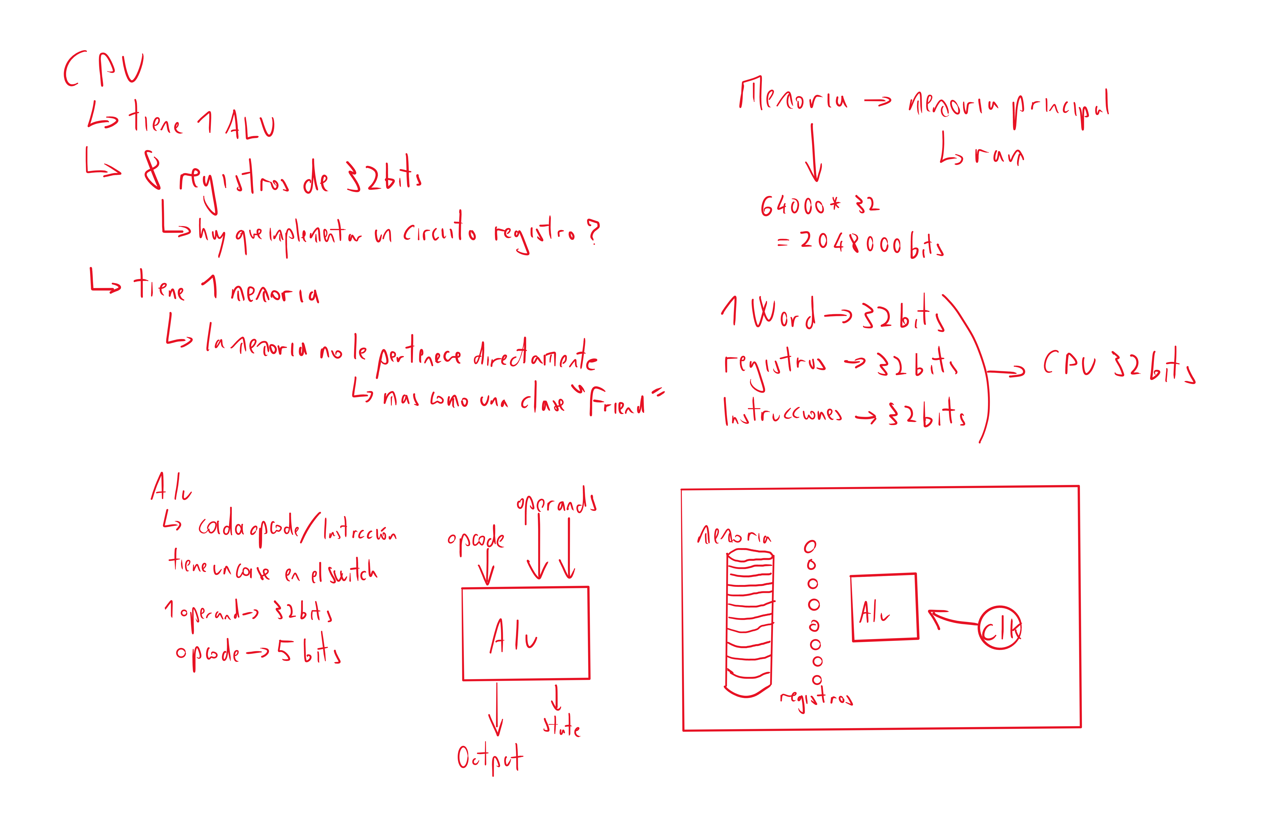 CPU
↳ tiene 1 ALU
↳ 8 registros de 32bits
↳ hay que implementar un circuito registro?
↳ tiene 1 memoria
↳ la memoria no le pertenece directamente
↳ mas como una clase "Friend"
Memoria → memoria principal
↳ ram
64000 * 32
= 2048000 bits
1 Word → 32bits
registros → 32bits
Instrucciones → 32bits
→ CPU 32bits
Alu
↳ cada opcode/Instrcción
tiene un case en el switch
1 operand → 32bits
opcode → 5 bits
operands
opcode
Alu
state
Output
memoria
Alu
clk
registros